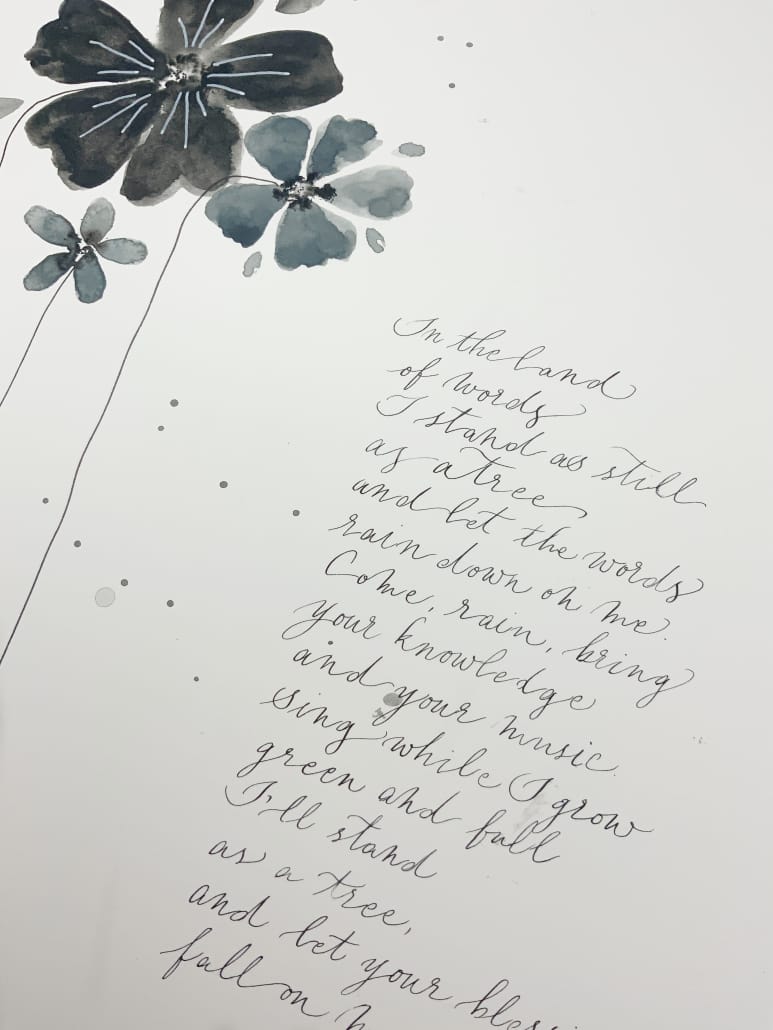 In the land
of words
I stand as still
as a tree
and let the words
rain down on me.
Come, rain, bring
your knowledge
and your music.
Sing while I grow
green and full
I'll stand
as a tree,
and let your
fall on